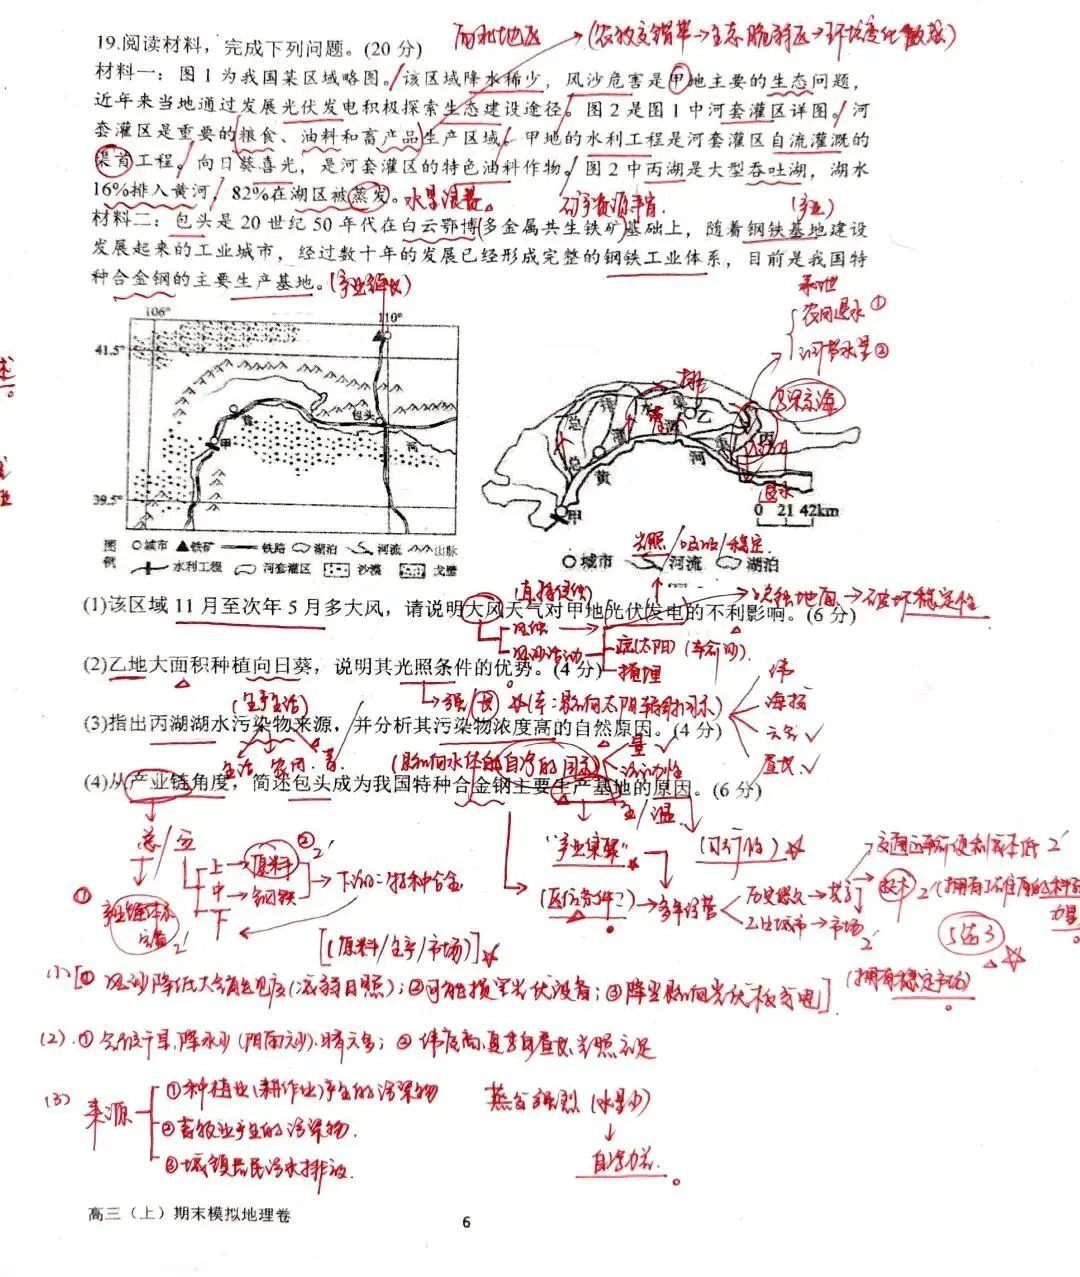 19.阅读材料，完成下列问题。(20分)
西北地区
(农牧交错带→生态脆弱区→环境变化敏感)
材料一：图1为我国某区域略图。该区域降水稀少，风沙危害是甲地主要的生态问题，
近年来当地通过发展光伏发电积极探索生态建设途径。图2是图1中河套灌区详图。河
套灌区是重要的粮食、油料和畜产品生产区域。甲地的水利工程是河套灌区自流灌溉的
渠首工程。向日葵喜光，是河套灌区的特色油料作物。图2中丙湖是大型吞吐湖，湖水
16%排入黄河，82%在湖区被蒸发。
矿产资源丰富.
(产业)
材料二：包头是20世纪50年代在白云鄂博(多金属共生铁矿)基础上，随着钢铁基地建设
发展起来的工业城市，经过数十年的发展已经形成完整的钢铁工业体系，目前是我国特
种合金钢的主要生产基地。
106° 110°
41.5°
39.5°
包头
黄
河
甲
图例
城市 铁矿 铁路 湖泊 河流 山脉
水利工程 河套灌区 沙漠 戈壁
农田退水①
②
乌梁素海
总
排
干
乙
丙
黄
河
甲
退水
0 21 42km
城市 河流 湖泊
光照/吸收/稳定.
(1)该区域11月至次年5月多大风，请说明大风天气对甲地光伏发电的不利影响。(6分)
风蚀
风沙活动
掩埋
破坏稳定性
(2)乙地大面积种植向日葵，说明其光照条件的优势。(4分)
(生产生活)
强/长
纬
海拔
云量
昼长
(3)指出丙湖湖水污染物来源，并分析其污染物浓度高的自然原因。(4分)
生活 农田
(影响水体的自净的因素)
量
流动性
(4)从产业链角度，简述包头成为我国特种合金钢主要生产基地的原因。(6分)
总/分
上→原料
中→钢铁
下
②2'
下游：特种合金
"产业集聚"
(区位条件?)
多年经营
历史悠久
工业城市→市场
2'
技术
交通运输便利成本低2'
5选3
[(原料/生产/市场)]
(拥有稳定市场)
(1)[①风沙降低大气能见度(减弱日照)；②可能损害光伏设备；③降尘影响光伏板发电]
(2).①气候干旱,降水少(阴雨天少).晴天多；②纬度高,夏季白昼长,光照充足
(3)
来源
①种植业(耕作业)产生的污染物
②畜牧业产生的污染物.
③城镇居民污水排放.
蒸发强烈(水量少)
自净力差.
高三（上）期末模拟地理卷
6